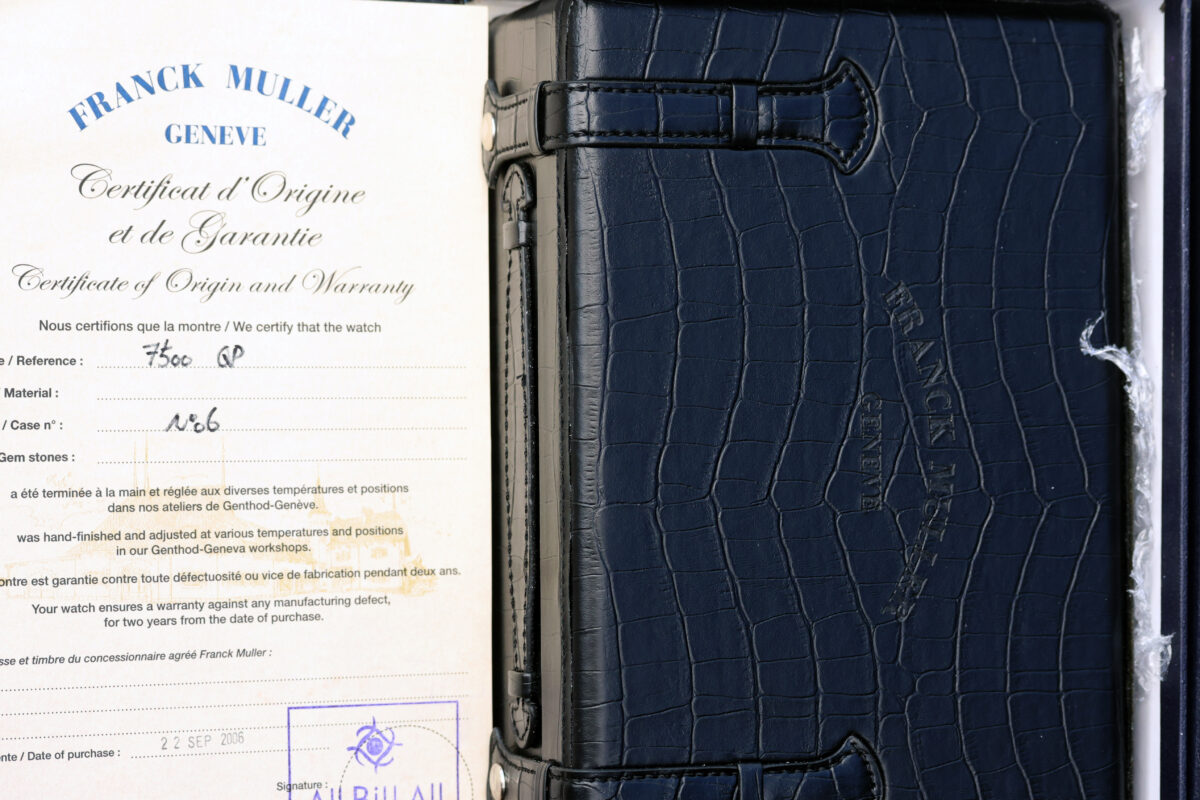 FRANCK MULLER
GENEVE
Certificat d'Origine
et de Garantie
Certificate of Origin and Warranty
Nous certifions que la montre / We certify that the watch
e / Reference : 7500 QP
/ Material :
/ Case n° : N°06
Gem stones :
a été terminée à la main et réglée aux diverses températures et positions
dans nos ateliers de Genthod-Genève.
was hand-finished and adjusted at various temperatures and positions
in our Genthod-Geneva workshops.
ontre est garantie contre toute défectuosité ou vice de fabrication pendant deux ans.
Your watch ensures a warranty against any manufacturing defect,
for two years from the date of purchase.
sse et timbre du concessionnaire agréé Franck Muller :
ente / Date of purchase : 22 SEP 2006
Signature :
All Bill All
FRANCK MULLER
GENEVE